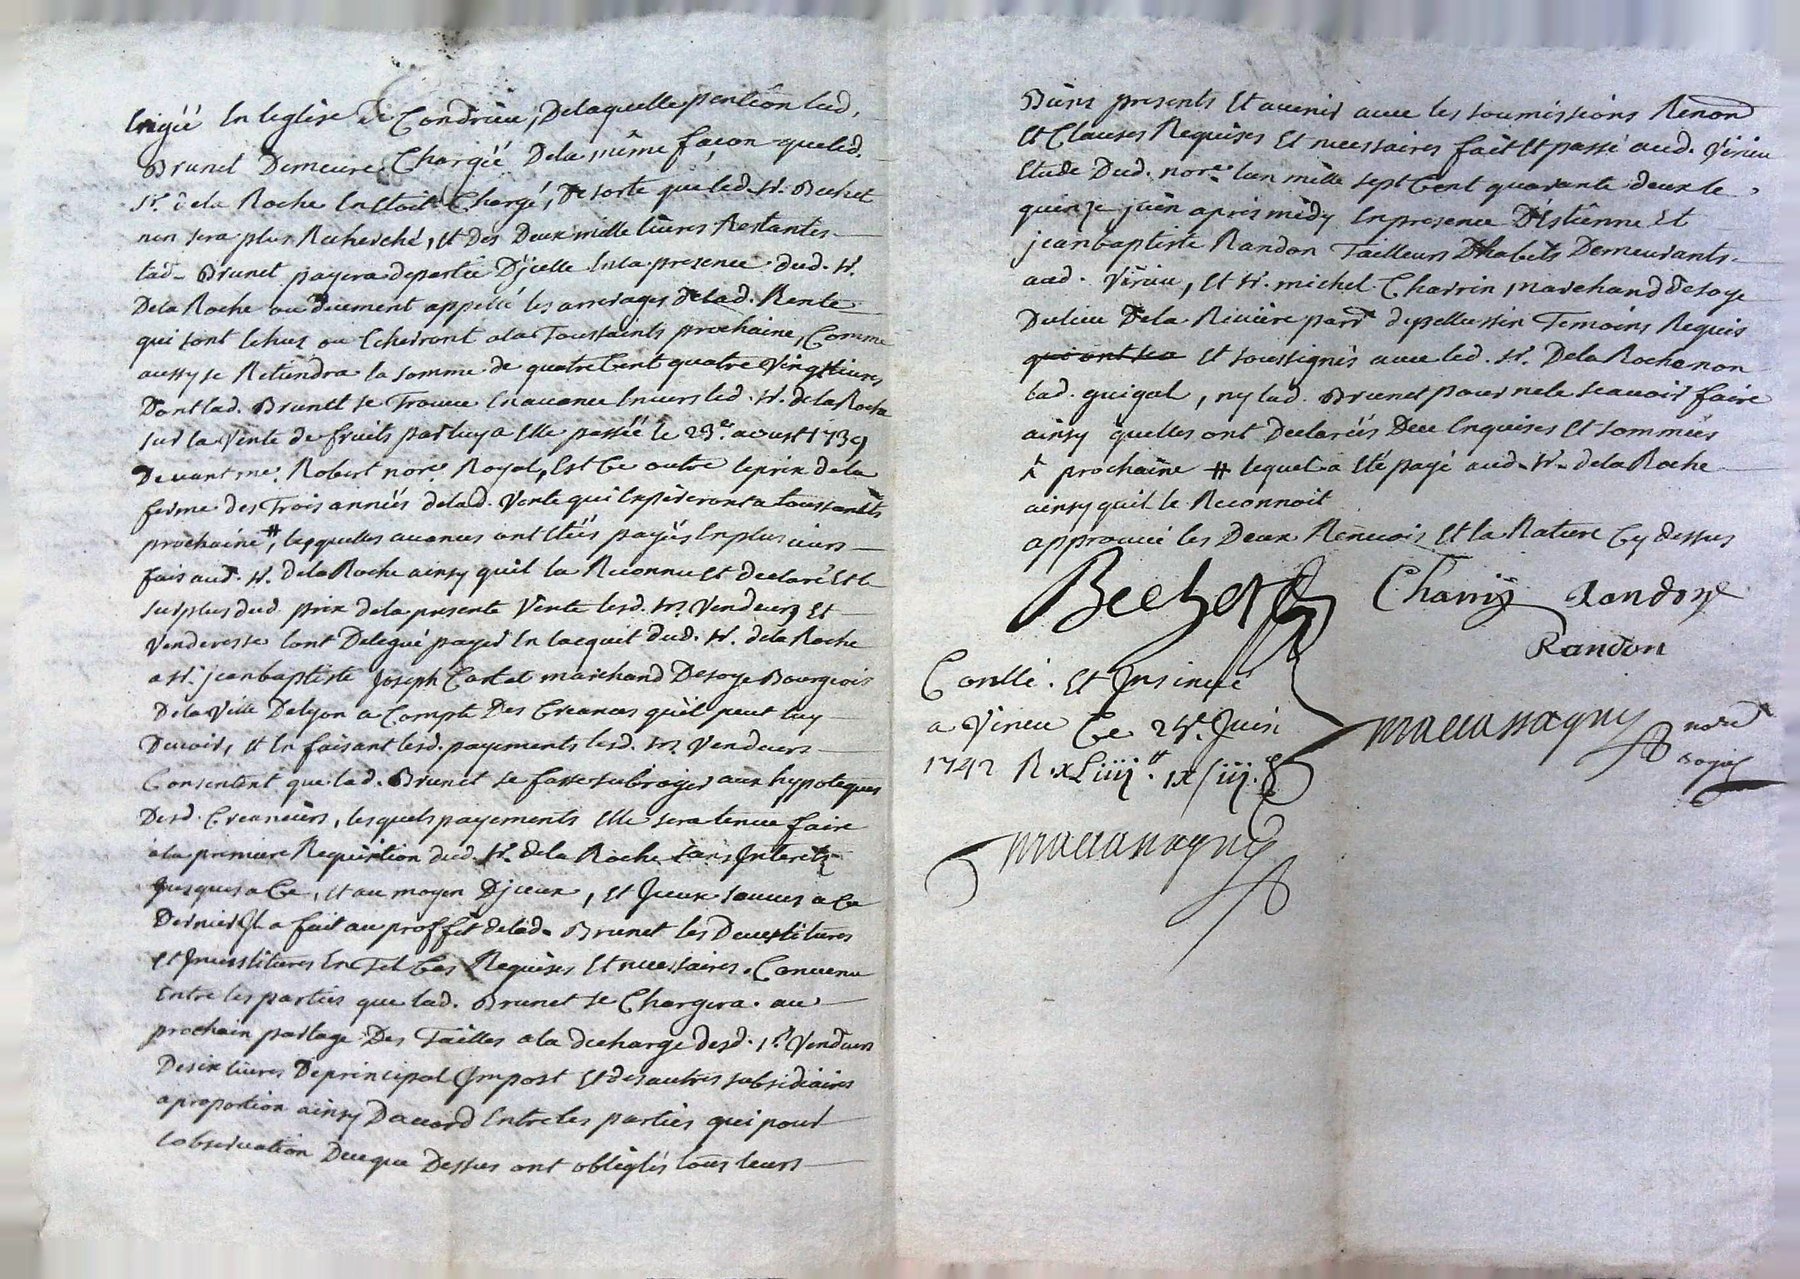 Erigée En leglise de Condrieu, Delaquelle pention lad.
Brunet Demeure Chargée Dela même façon queled.
Sr. dela Roche En Etoit Chargé, De sorte que led. Sr. Bechet
nen sera plus Recherché, Et Des Deux mille livres Restantes
lad. Brunet payera departie D'jcelle En la presence dud. Sr.
Dela Roche ou duement appellé les arrerages delad. Rente
qui sont Echus ou Echerront ala Toussaints prochaine, Comme
aussy se Retiendra la somme de quatre Cent quatre Vingt livres
Dont lad. Brunet se Trouve En avance Envers led. Sr. dela Roche
sur la Vente de fruits par luy a Elle passée le 23e. aoust 1739
Devant me. Robert nore. Royal, Est Ce outre le prix dela
ferme des Trois années delad. Vente qui Expireront a toussaints
prochaine #, lesquelles avances ont Etées payés En plusieurs
fois aud. Sr. dela Roche ainsy quil la Reconnu Et declaré Et le
surplus dud. prix dela presente Vente lesd. Srs. Vendeurs Et
Venderesse lont Delegué payer En lacquit dud. Sr. dela Roche
a Sr. jean baptiste Joseph Castat marchand De soye Bourgeois
Dela Ville De lyon a Compte Des Creances quil peut luy
Devoir, Et En faisant lesd. payements lesd. Srs. Vendeurs
Consentent que lad. Brunet se fasse subroger aux hypoteques
Desd. Creanciers, lesquels payements Elle sera tenue faire
ala premiere Requisition dud. Sr. dela Roche sans Interets
jusques a Ce, Et au moyen D'jceux, Et
Dernier Jl a fait au proffit delad. Brunet les Devestitures
et Jnvestitures En Tel Cas Requises Et necessaires. Convenu
Entre les parties que lad. Brunet se Chargera au
prochain partage Des Tailles ala decharge desd. Srs. Vendeurs
De six livres De principal Jmpost Et des autres subsidiaires
a proportion ainsy Daccord Entre les parties qui pour
lobservation Dece que Dessus ont obligés tous leurs
Biens presents Et avenir avec les soumissions Renond
Et Clauses Requises Et necessaires fait Et passé aud. Virieu
Etude Dud. nore. lan mille sept Cent quarante deux le
quinze juin apres midy En presence D'Estienne Et
jean baptiste Randon Tailleurs Dhabits Demeurants
aud. Virieu, Et Sr. michel Charrin marchand de soye
Du lieu Dela Riviere parr. de pellussin Temoins Requis
qui ont sca Et soussignés avec led. Sr. Dela Roche non
lad. guigal, ny lad. Brunet pour ne le scavoir faire
ainsy quelles ont Declarées Dece Enquises Et sommées
prochaine # lequel a Eté payé aud. Sr. dela Roche
ainsy quil le Reconnoit
approuvé les Deux Renvois Et la Rature Cy dessus
Bechet Charrin Randon
Randon
Conllé. Et Jnsinué
a Virieu Ce 25e. Juin
1742 R. xLiiij